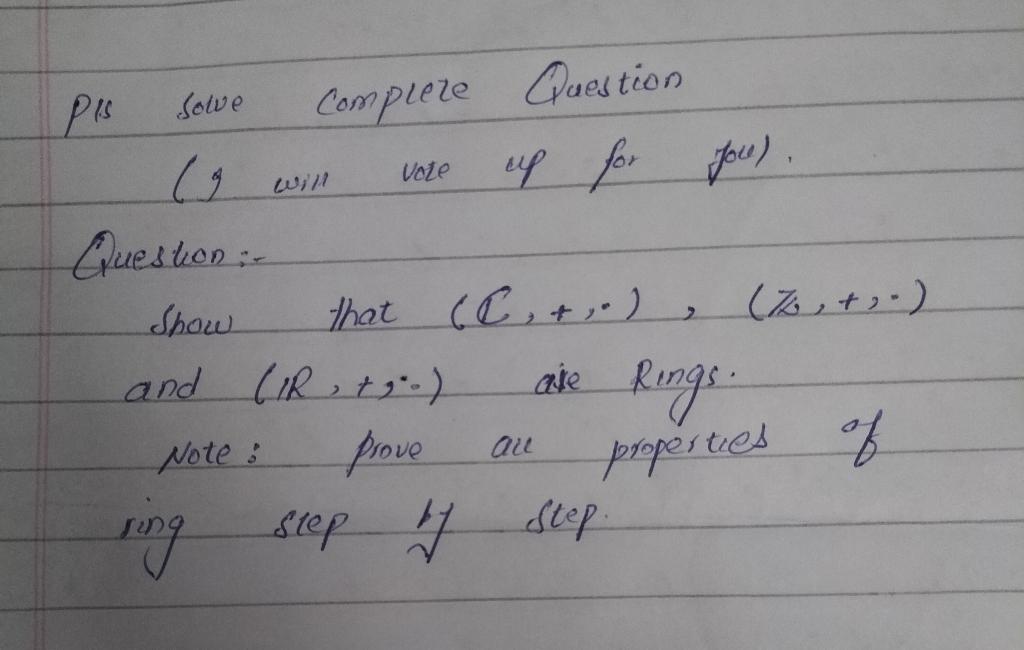 Pls solve Complete Question
(I will vote up for you).
Question :-
Show that (ℂ, +, ·) , (ℤ, +, ·)
and (ℝ, +, ·) are Rings.
Note : Prove all properties of
ring step by step.